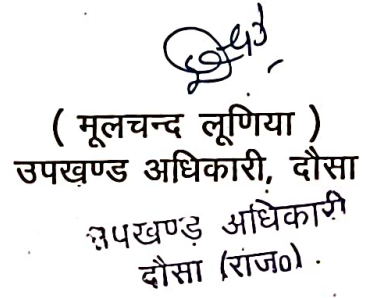 ( मूलचन्द लूणिया )
उपखण्ड अधिकारी, दौसा
उपखण्ड अधिकारी
दौसा (राज०)